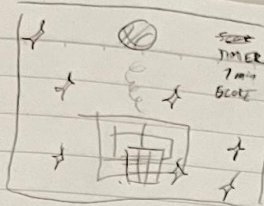 TIMER
1 min
SCORE